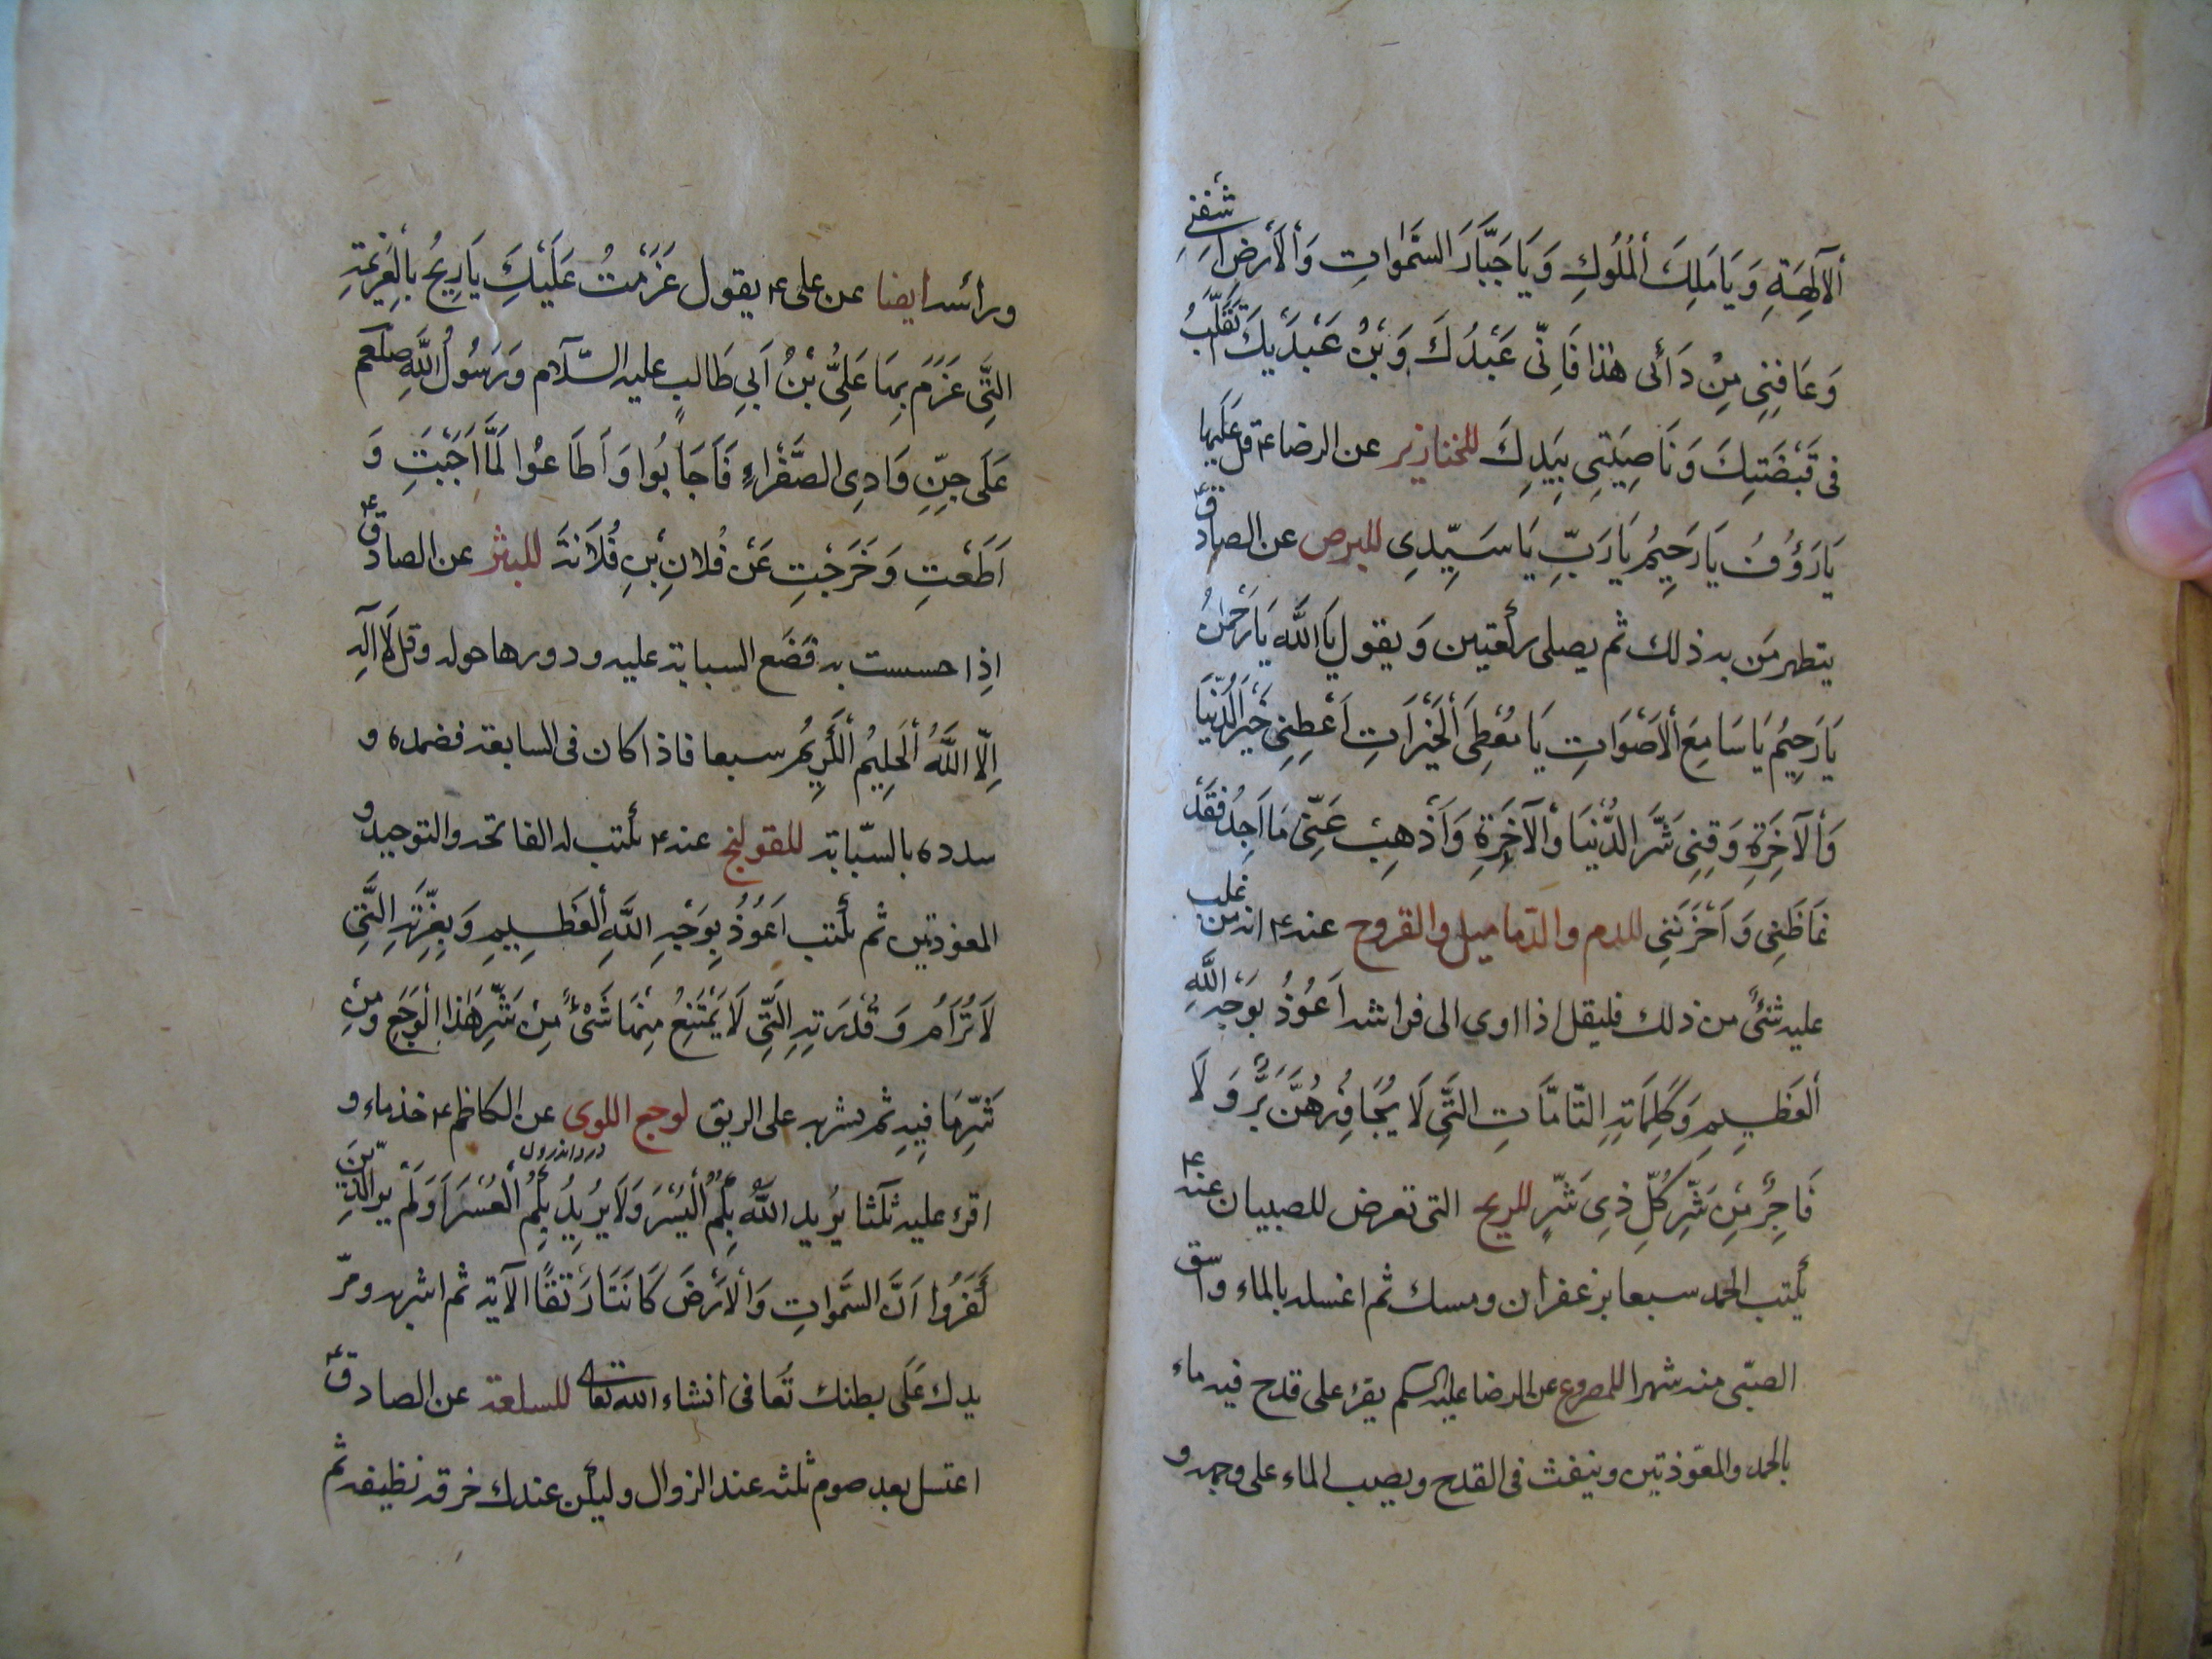 أَلآلِهَةِ وَ يَا مَلِكَ أَلْمُلُوكِ وَ يَا جَبَّارَ السَّمٰوَاتِ وَ أَلأَرْضِ اشفنى
وَ عَافِنِى مِنْ دَائى هٰذا فَاِنّى عَبْدُكَ وَ بْنُ عَبْدَيْكَ اَتَقَلَّبُ
فى قَبْضَتِكَ وَ نَاصِيَتِى بِيَدِكَ للخنازير عن الرضا ع قل عليها
يَا رَؤُفُ يَا رَحِيمُ يَا رَبِّ يَا سَيِّدِى للبرص عن الصادق ع
يتطهر مَن به ذلك ثم يصلى ركعتين وَ يقول يَا اللَّه يَا رَحْمٰنُ
يَا رَحِيمُ يَا سَامِعَ أَلاَصْوَاتِ يَا مُعْطِىَ أَلْخَيْرَاتِ اَعْطِنِى خَيْرَ الدُّنْيَا
وَ أَلآخِرَةِ وَ قِنِى شَرَّ الدُّنْيَا وَ أَلآخِرَةِ وَ أَذْهِبْ عَنِّى مَا اَجِدُ فَقَدْ
غَاظَنِى وَ اَحْزَنَنِى للدم والدّماميل والقروح عنه ع انه من غلب
عليه شئ من ذلك فليقل اذا اوى الى فراشه اَعُوذُ بِوَجْهِ اللَّهِ
أَلعَظِيمِ وَ كَلِمَاتِهِ التَّامَّاتِ الَّتِى لَا يُجَاوِزُهُنَّ بَرٌّ وَ لَا
فَاجِرٌ مِنْ شَرِّ كُلِّ ذِى شَرٍّ للريح التى تعرض للصبيان عنه ع
يكتب الحمد سبعا بزعفران ومسك ثم اغسله بالماء واسق
الصبّى منه شهرا للمصروع عن الرضا عليه السلام يقرء على قدح فيه ماء
بالحمد والمعوّذتين وينفث فى القدح ويصب الماء على وجهه و
ورأسه ايضا عن على ع يقول عَزَمْتُ عَلَيْكِ يَا رِيحُ بِالْعَزِيمَةِ
الَّتِى عَزَمَ بِهَا عَلِىُّ بْنُ اَبِي طَالِبٍ عليه السّلام وَ رَسُولُ اللَّهِ صلعم
عَلَى جِنِّ وَادِى الصَّفْرَاءِ فَاَجَابُوا وَ اَطَاعُوا لَمَّا اَجَبْتِ وَ
اَطَعْتِ وَ خَرَجْتِ عَنْ فُلاَنِ بْنِ فُلاَنَة للبثر عن الصادق ع
اِذا حسست به فَضَع السبابة عليه ودورها حوله وقل لاَ اله
اِلّا اللَّهُ أَلْحَلِيمُ أَلْكَرِيمُ سبعا فاذا كان فى السابعة فضمده و
سدده بالسّبابة للقولنج عنه ع يكتب له الفاتحه والتوحيد و
المعوذتين ثم يكتب اَعُوذُ بِوَجْهِ اللَّهِ أَلعَظِيمِ وَ بِعِزَّتِهِ الَّتِى
لاَ تُرَامُ وَ قُدْرَتِهِ الَّتِى لَا يَمْتَنِعُ مِنْهَا شَىْءٌ مِنْ شَرِّ هٰذَا الْوَجَعِ وَ مِنْ
شَرِّ مَا فِيهِ ثم يشربه على الريق لوجع اللوى عن الكاظم ع خذ ماء و
درد اندرون
اقرء عليه ثلثا يُرِيد اللَّهُ بِكُمُ الْيُسْرَ وَ لَا يُرِيدُ بِكُمُ أَلْعُسْرَ اَوَ لَمْ يَرَ الَّذِينَ
كَفَرُوا اَنَّ السَّمٰوَاتِ وَ الْاَرْضَ كَانَتَا رَتْقًا الآية ثم اشربه ومرّ
يدك عَلَى بطنك تَعَافى انشاء الله تعالى للسلعة عن الصادق ع
اغتسل بعد صوم ثلثه عند الزوال وليكن عندك خرقة نظيفه ثم